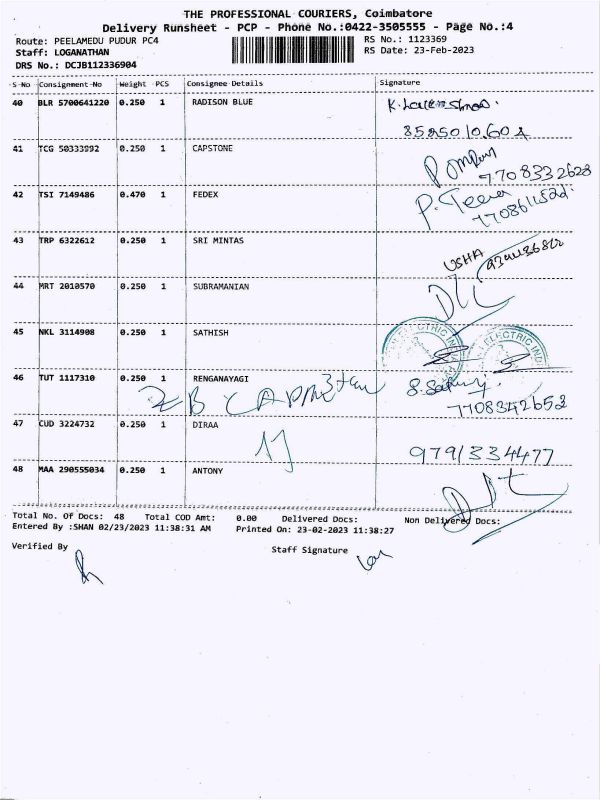 THE PROFESSIONAL COURIERS, Coimbatore
Delivery Runsheet - PCP - Phone No.:0422-3505555 - Page No.:4
Route: PEELAMEDU PUDUR PC4 RS No.: 1123369
Staff: LOGANATHAN RS Date: 23-Feb-2023
DRS No.: DCJB112336904
S No Consignment-No Weight PCS Consignee Details Signature
40 BLR 5700641220 0.250 1 RADISON BLUE
41 TCG 50333992 0.250 1 CAPSTONE
7708332628
42 TSI 7149486 0.470 1 FEDEX
43 TRP 6322612 0.250 1 SRI MINTAS
USHA
44 MRT 2010570 0.250 1 SUBRAMANIAN
45 NKL 3114908 0.250 1 SATHISH
ELECTRIC ELECTRIC IND
46 TUT 1117310 0.250 1 RENGANAYAGI
7708342652
47 CUD 3224732 0.250 1 DIRAA
9791334477
48 MAA 290555034 0.250 1 ANTONY
Total No. Of Docs: 48 Total COD Amt: 0.00 Delivered Docs: Non Delivered Docs:
Entered By :SHAN 02/23/2023 11:38:31 AM Printed On: 23-02-2023 11:38:27
Verified By Staff Signature